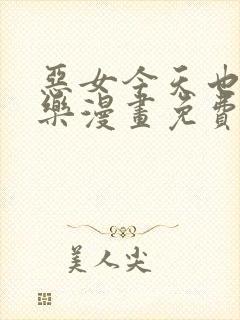 惡女今天也
樂漫畫免費
美人尖